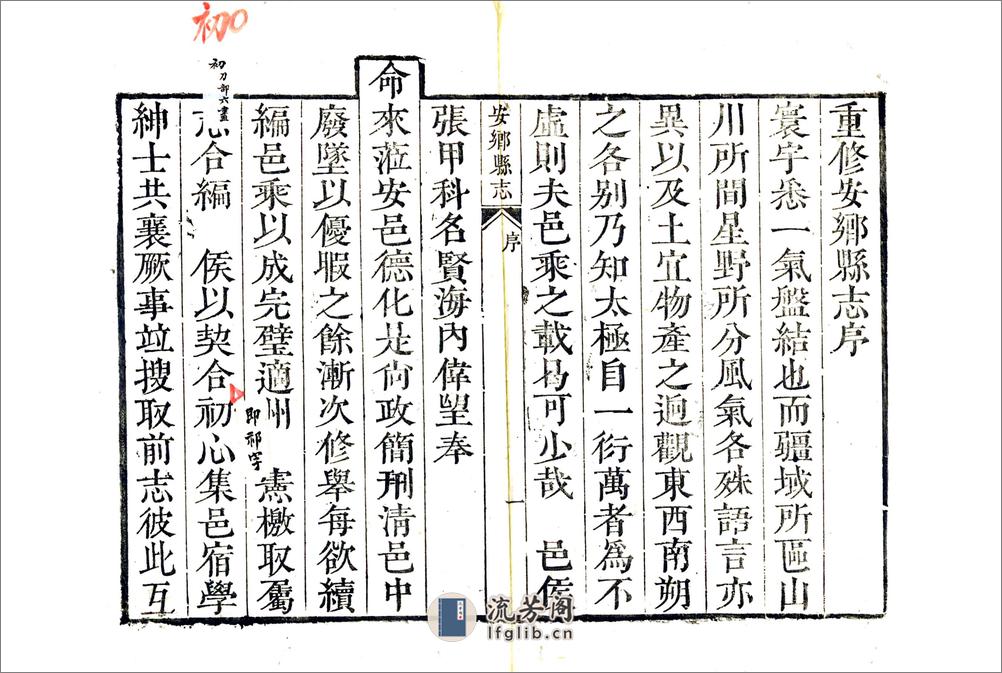 重修安鄉縣志序
寰宇悉一氣盤結也而疆域所區山
川所間星野所分風氣各殊語言亦
異以及土宜物產之迥觀東西南朔
之各別乃知太極自一衍萬者爲不
虛則夫邑乘之載曷可少哉　邑侯
安鄉縣志
序
一
張甲科名賢海內偉望奉
命來蒞安邑德化是尚政簡刑清邑中
廢墜以優暇之餘漸次修舉每欲續
編邑乘以成完璧適州　憲檄取屬
志合編　侯以契合初心集邑宿學
紳士共襄厥事竝搜取前志彼此互
初
初刀部六畫
流芳阁
lfglib.cn